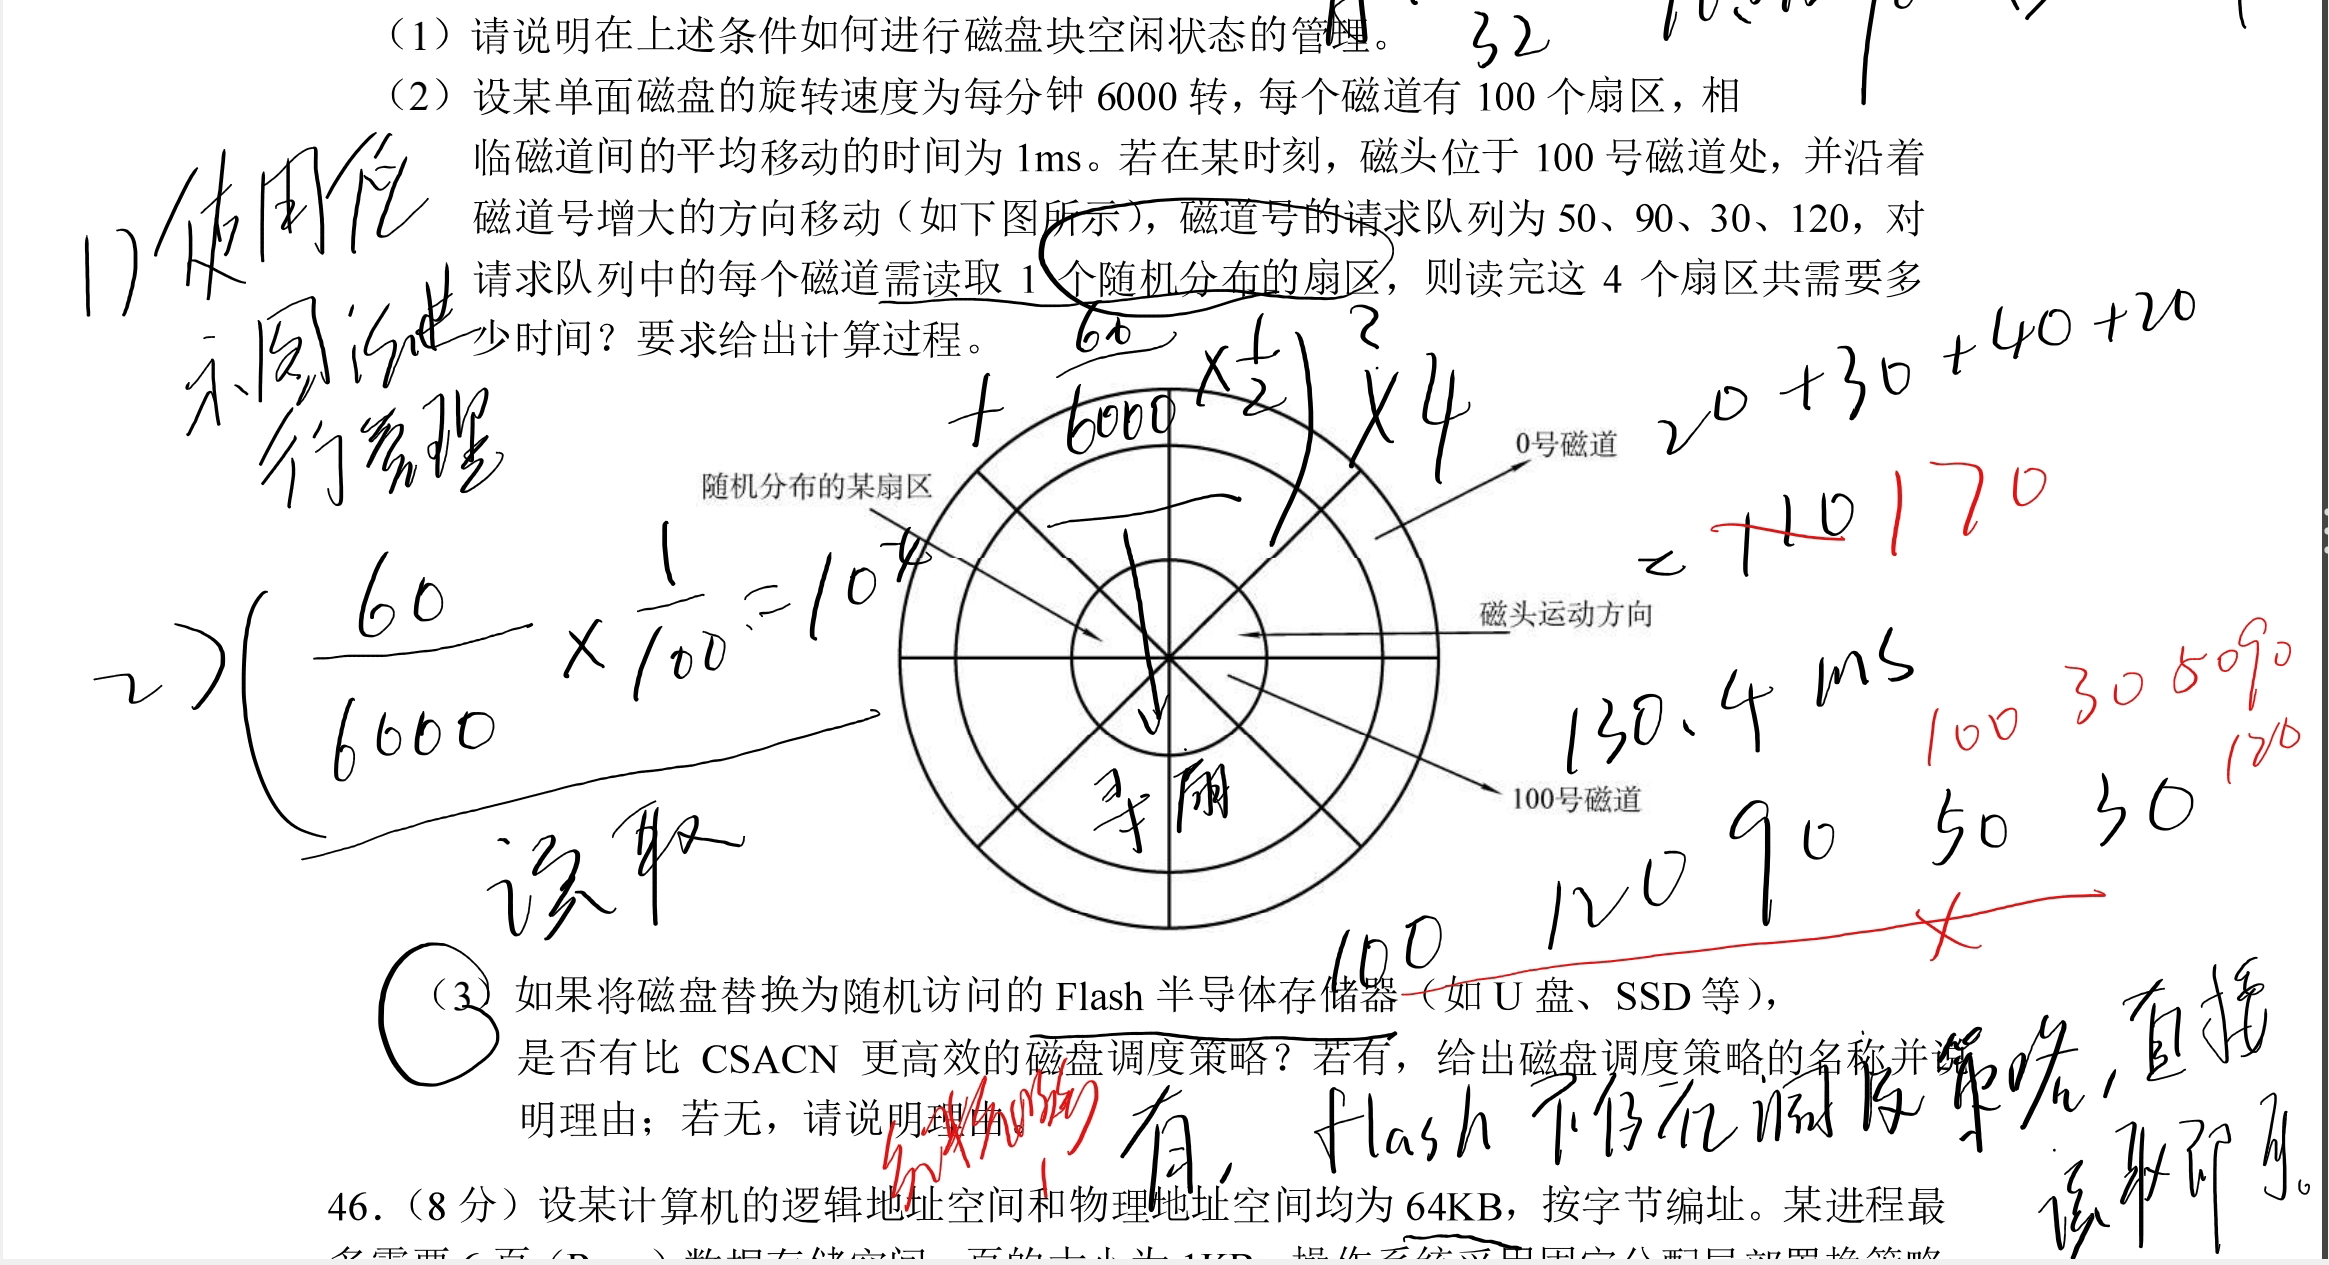 32
（1）请说明在上述条件如何进行磁盘块空闲状态的管理。
（2）设某单面磁盘的旋转速度为每分钟 6000 转，每个磁道有 100 个扇区，相
临磁道间的平均移动的时间为 1ms。若在某时刻，磁头位于 100 号磁道处，并沿着
磁道号增大的方向移动（如下图所示），磁道号的请求队列为 50、90、30、120，对
请求队列中的每个磁道需读取 1 个随机分布的扇区，则读完这 4 个扇区共需要多
少时间？要求给出计算过程。
1) 使用位
示图法进
行管理
+ 60/6000 × 1/2 ) × 4
?
20 + 30 + 40 + 20
= 110 170
0号磁道
随机分布的某扇区
磁头运动方向
100号磁道
2) ( 60/6000 × 1/100 = 10
读取
寻扇
130.4 ms
100 30 50 90
120
100 120 90 50 30
×
（3）如果将磁盘替换为随机访问的 Flash 半导体存储器（如 U 盘、SSD 等），
是否有比 CSACN 更高效的磁盘调度策略？若有，给出磁盘调度策略的名称并说
明理由；若无，请说明理由。
有, flash 不存在调度策略, 直接
读取即可。
46.（8 分）设某计算机的逻辑地址空间和物理地址空间均为 64KB，按字节编址。某进程最